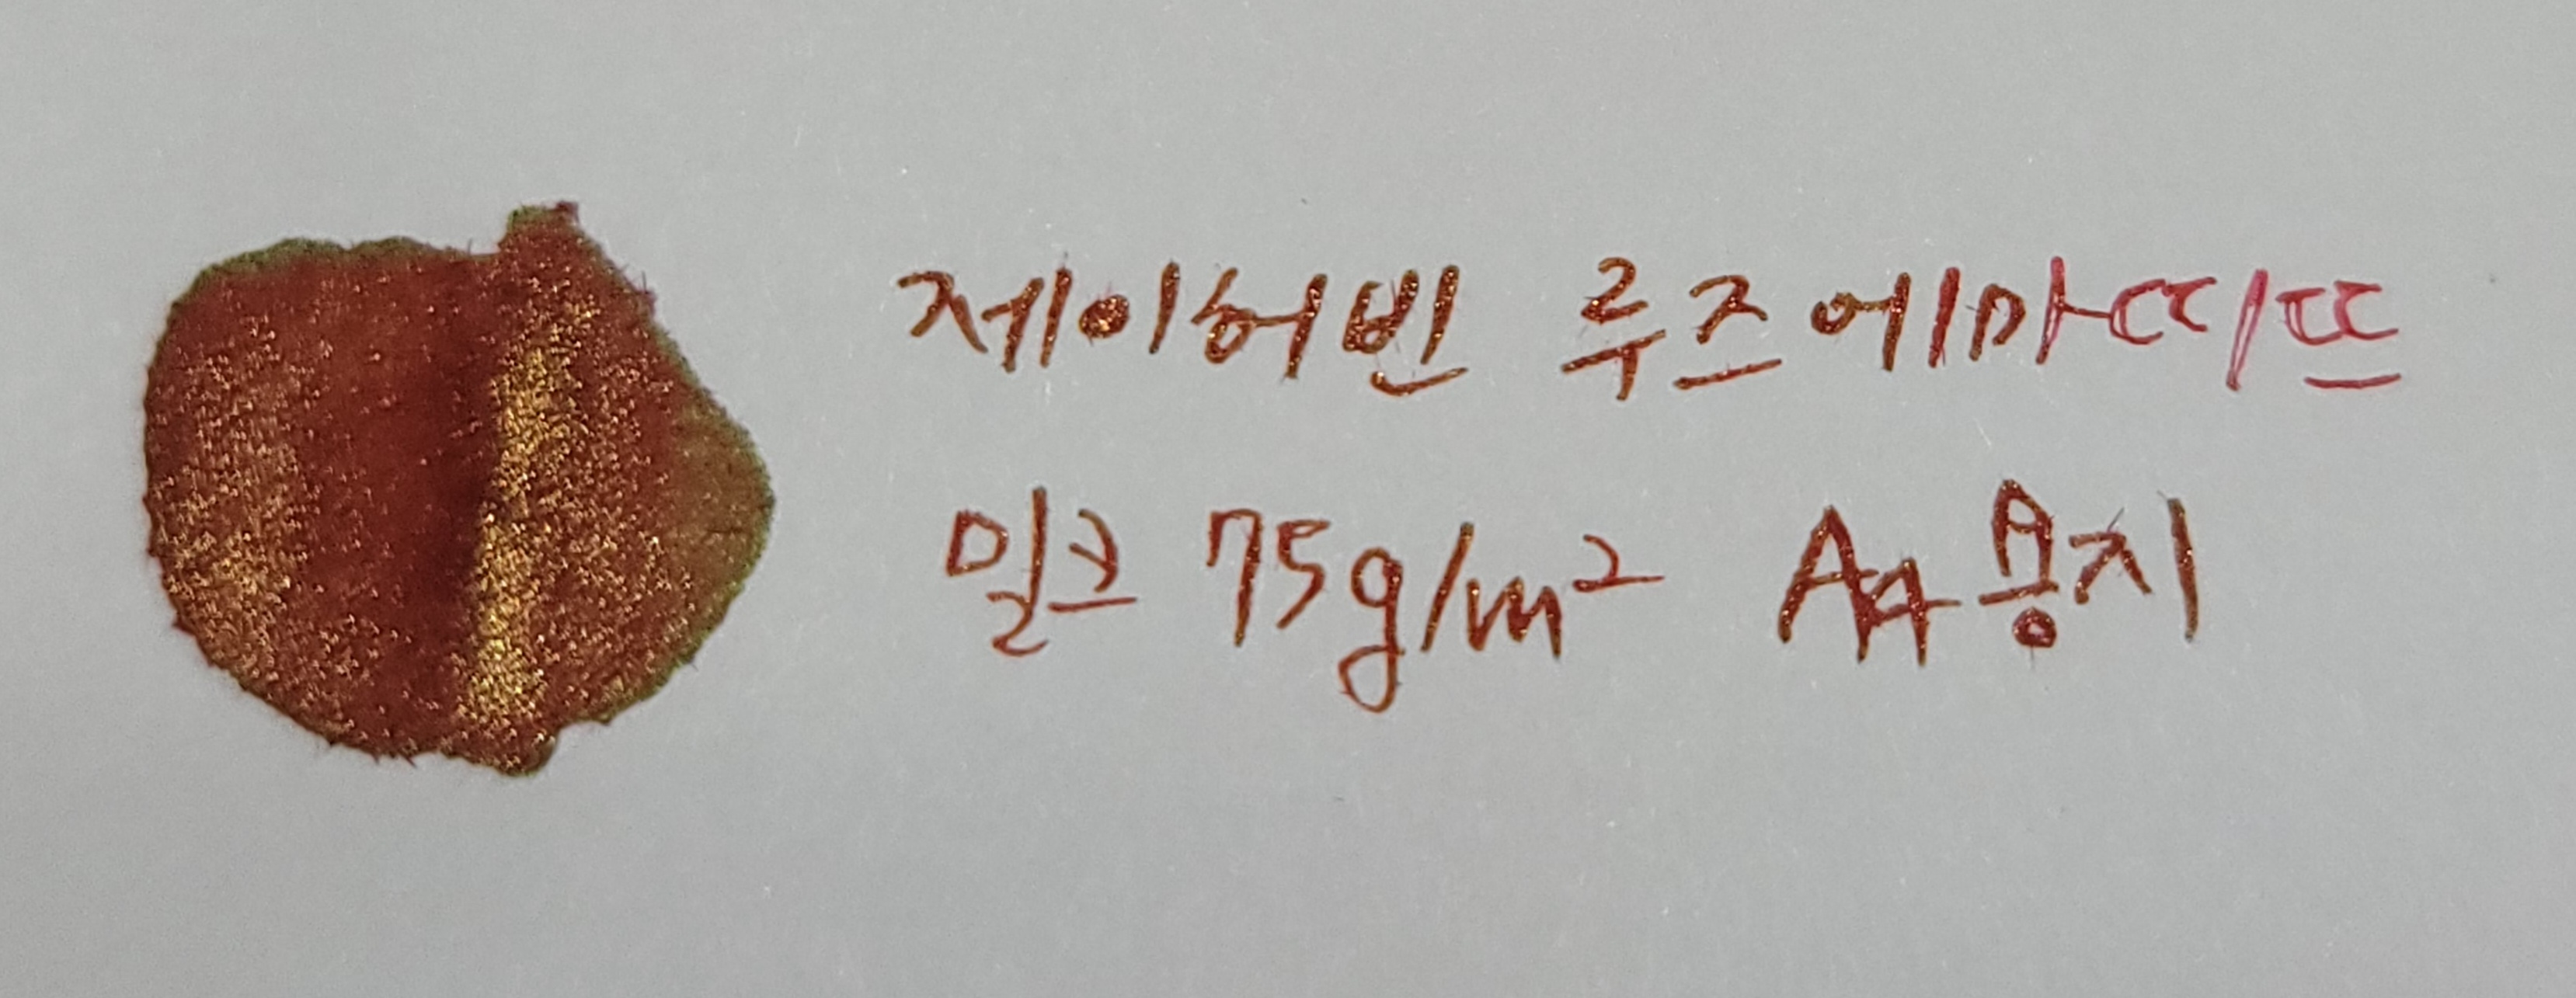 제이허빈 루즈에마띠뜨
밀크 75g/m² A4용지